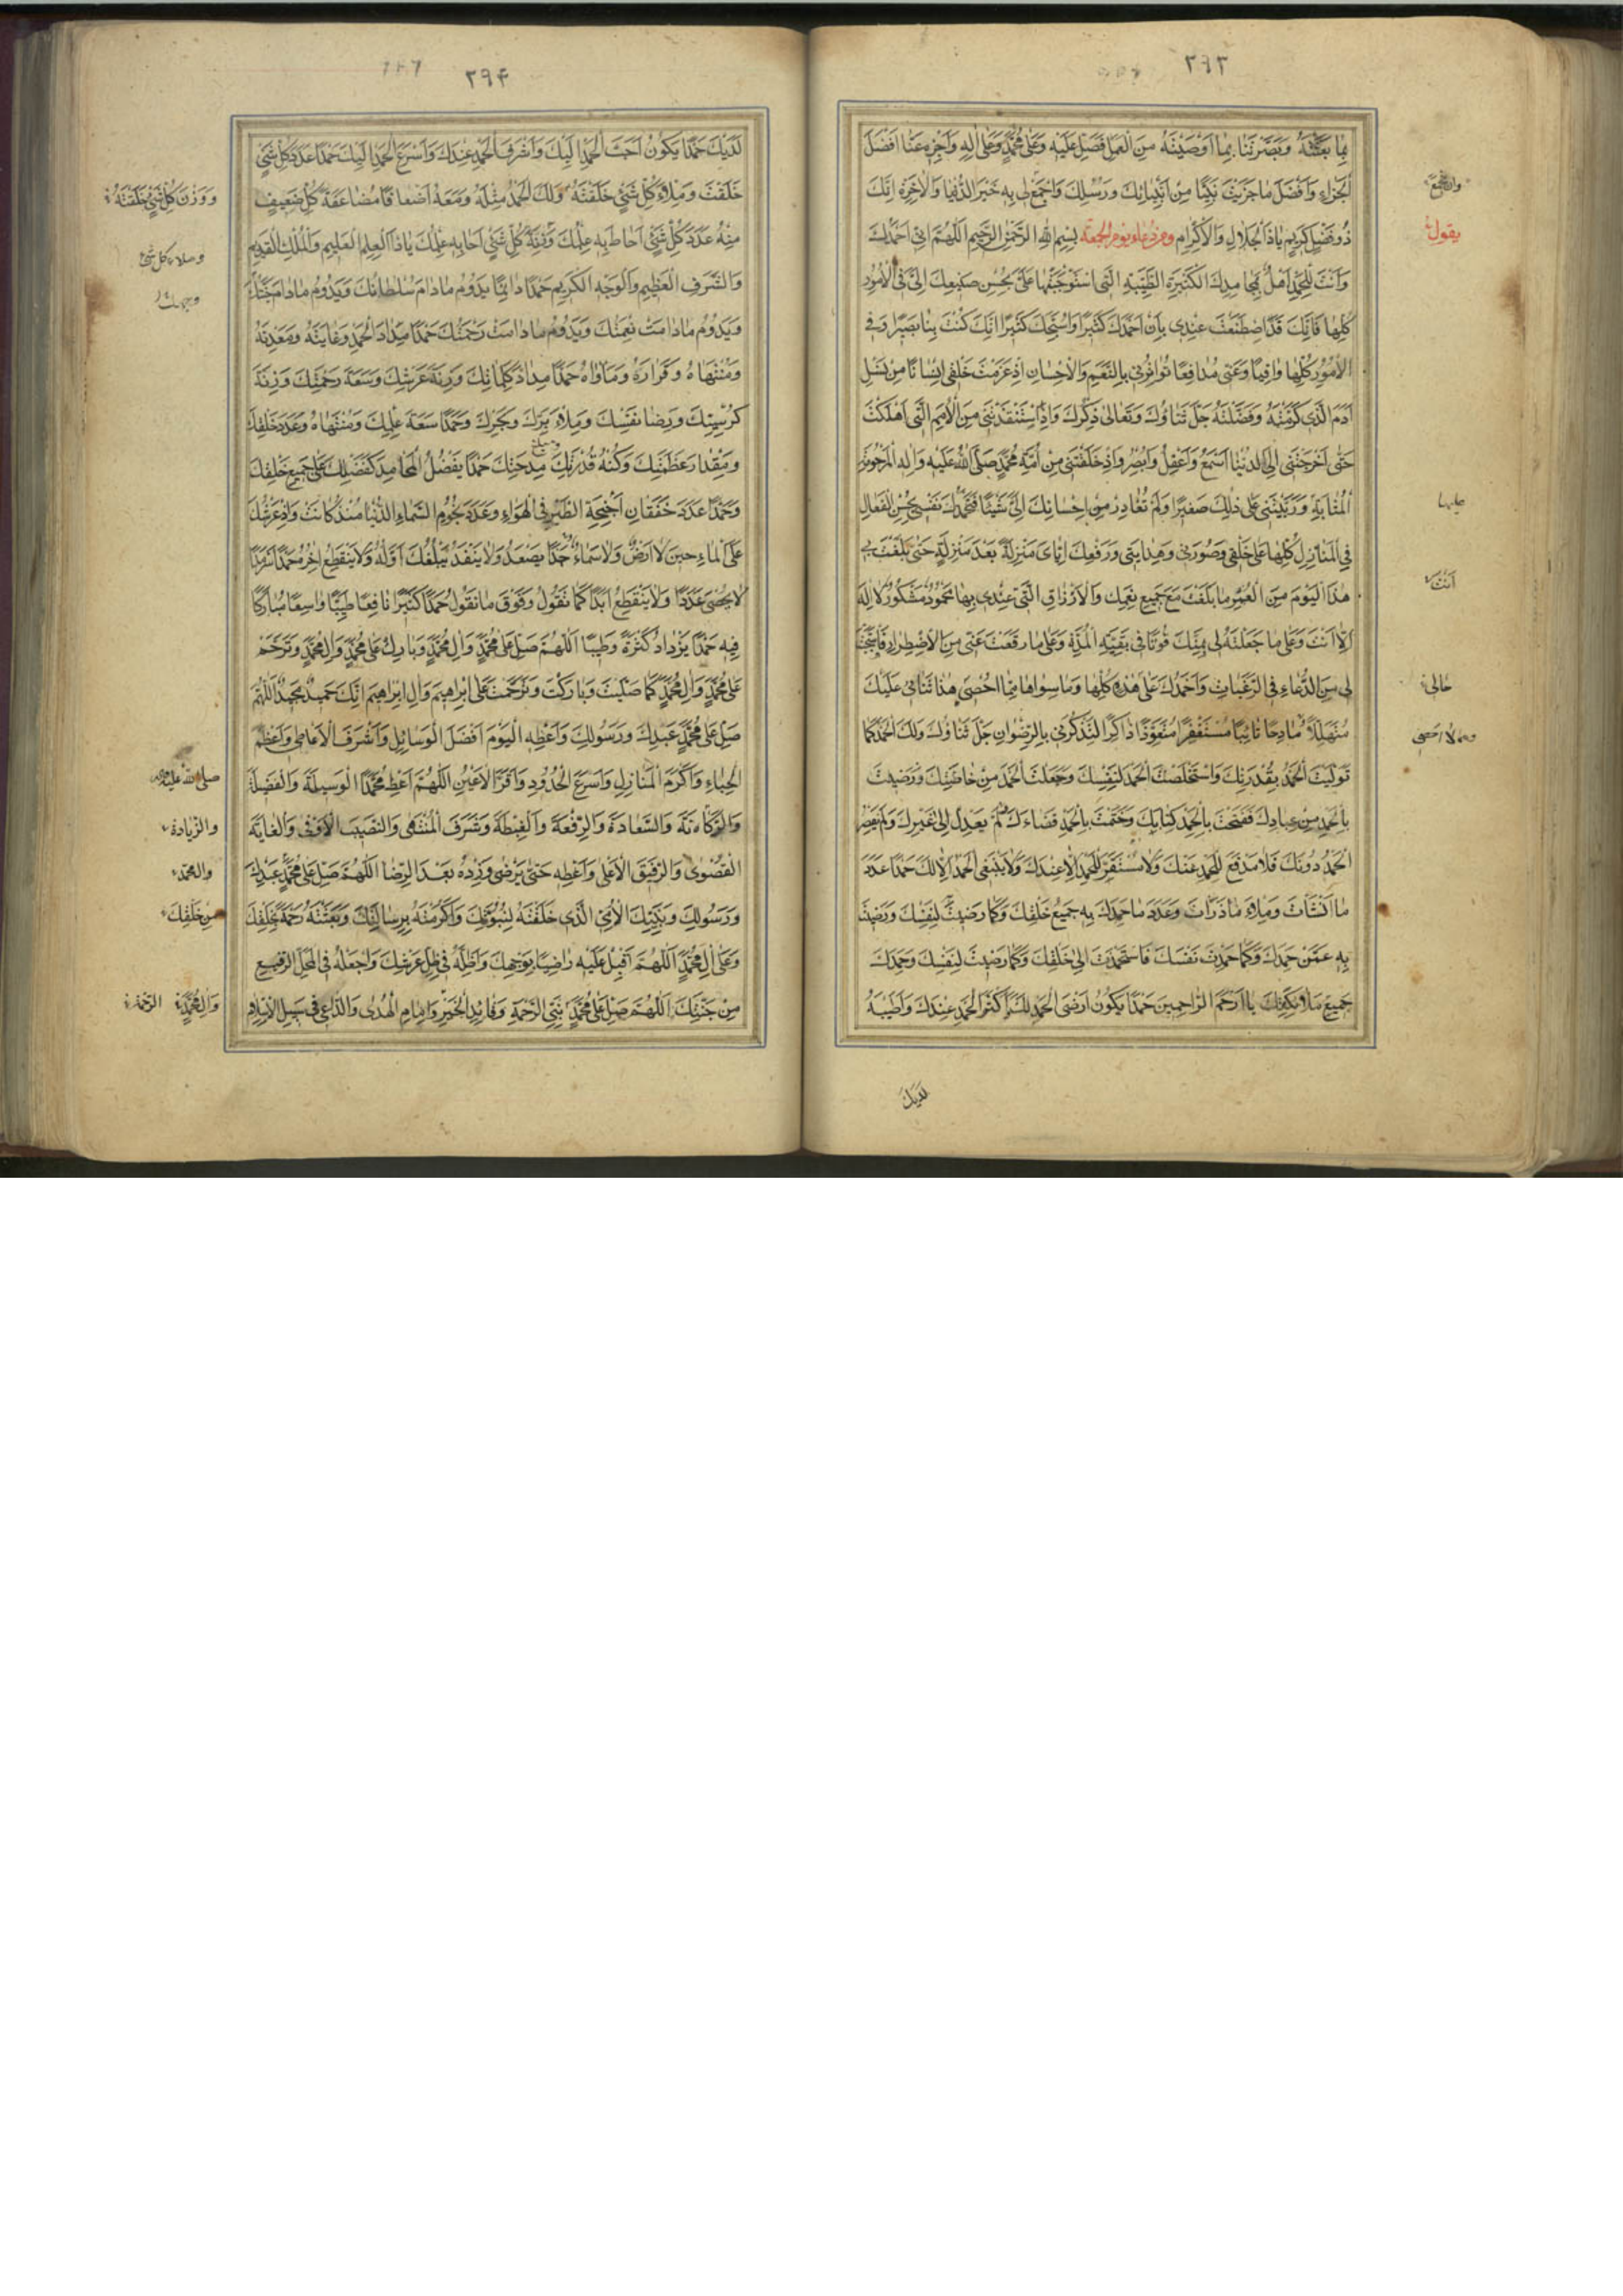 ٢٩٣
بِمَا بَعَثْتَهُ وَبَصَّرْتَنَا بِمَا اَوْصَيْتَهُ مِنَ الْعَمَلِ فَصَلِّ عَلَيْهِ وَعَلٰى مُحَمَّدٍ وَعَلٰى اٰلِهِ وَاَجْزِهِ عَنَّا اَفْضَلَ
الْجَزَاءِ وَاَفْضَلَ مَا جَزَيْتَ نَبِيًّا مِنْ اَنْبِيَائِكَ وَرُسُلِكَ وَاجْمَعْ لِي بِهِ خَيْرَ الدُّنْيَا وَالْاٰخِرَةِ اِنَّكَ
ذُو فَضْلٍ كَرِيْمٍ يَا ذَا الْجَلَالِ وَالْاِكْرَامِ ومن دعاء يوم الجمعة بِسْمِ اللهِ الرَّحْمٰنِ الرَّحِيْمِ اَللّٰهُمَّ اِنِّي اَحْمَدُكَ
يقول
وَاَنْتَ لِلْحَمْدِ اَهْلٌ بِمَحَامِدِكَ الْكَثِيْرَةِ الطَّيِّبَةِ الَّتِي اسْتَوْجَبْتَهَا عَلَيَّ بِحُسْنِ صَنِيْعِكَ اِلَيَّ فِي الْاُمُوْرِ
كُلِّهَا فَاِنَّكَ قَدِ اصْطَنَعْتَ عِنْدِي بِاَنْ اَحْمَدَكَ كَثِيْرًا وَاُسَبِّحَكَ كَثِيْرًا اِنَّكَ كُنْتَ بِنَا بَصِيْرًا وَفِي
الْاُمُوْرِ كُلِّهَا وَاقِيًا وَعَنِّي مُدَافِعًا تُوَاتِرُنِي بِالنِّعَمِ وَالْاِحْسَانِ اِذْ عَزَمْتَ خَلْقِي اِنْسَانًا مِنْ نَسْلِ
اٰدَمَ الَّذِي كَرَّمْتَهُ وَفَضَّلْتَهُ جَلَّ ثَنَاؤُكَ وَتَعَالٰى ذِكْرُكَ وَاِذِ اسْتَنْقَذْتَنِي مِنَ الْاُمَمِ الَّتِي اَهْلَكْتَ
حَتّٰى اَخْرَجْتَنِي اِلَى الدُّنْيَا اَسْمَعُ وَاَعْقِلُ وَاُبْصِرُ وَاِذْ خَلَقْتَنِي مِنْ اُمَّةِ مُحَمَّدٍ صَلَّى اللهُ عَلَيْهِ وَاٰلِهِ الْمَرْحُوْمَةِ
الْمُثَابَةِ وَرَبَّيْتَنِي عَلٰى ذٰلِكَ صَغِيْرًا وَلَمْ تُغَادِرْ مِنْ اِحْسَانِكَ اِلَيَّ شَيْئًا فَتَحْمَدُكَ نَفْسِي بِحُسْنِ الْفَعَالِ
فِي الْمَنَازِلِ كُلِّهَا عَلٰى خَلْقِي وَصُوْرَتِي وَهِدَايَتِي وَرَفْعِكَ اِيَّايَ مَنْزِلَةً بَعْدَ مَنْزِلَةٍ حَتّٰى بَلَغْتَ بِي
هٰذَا الْيَوْمَ مِنَ الْعُمُرِ مَا بَلَغْتَ مَعَ جَمِيْعِ نِعَمِكَ وَالْاَرْزَاقِ الَّتِي عِنْدِي بِهَا مَحْمُوْدٌ مَشْكُوْرٌ لَا اِلٰهَ
اِلَّا اَنْتَ وَعَلٰى مَا جَعَلْتَهُ لِي بِمَنِّكَ قُوْتًا فِي بَقِيَّةِ الْمُدَّةِ وَعَلٰى مَا رَفَعْتَ عَنِّي مِنَ الْاِضْطِرَارِ
لِي مِنَ الدُّعَاءِ فِي الرَّغَبَاتِ وَاَحْمَدُكَ عَلٰى هٰذِهِ كُلِّهَا وَمَا سِوَاهَا مِمَّا اُحْصِي هٰذَا ثَنَائِي عَلَيْكَ
مُتَهَلِّلًا مَادِحًا تَائِبًا مُسْتَغْفِرًا مُتَعَوِّذًا ذَاكِرًا لِتَذْكُرَنِي بِالرِّضْوَانِ جَلَّ ثَنَاؤُكَ وَلَكَ الْحَمْدُ كَمَا
تَوَلَّيْتَ الْحَمْدَ بِقُدْرَتِكَ وَاسْتَخْلَصْتَ الْحَمْدَ لِنَفْسِكَ وَجَعَلْتَ الْحَمْدَ مِنْ خَاصَّتِكَ وَرَضِيْتَ
بِالْحَمْدِ مِنْ عِبَادِكَ فَفَتَحْتَ بِالْحَمْدِ كِتَابَكَ وَخَتَمْتَ بِالْحَمْدِ قَضَاءَكَ لَمْ يَعْدِلْ اِلٰى غَيْرِكَ وَلَمْ يَقْصُرِ
الْحَمْدُ دُوْنَكَ فَلَا مَدْفَعَ لِلْحَمْدِ عَنْكَ وَلَا مُسْتَقَرَّ لِلْحَمْدِ اِلَّا عِنْدَكَ وَلَا يَنْبَغِي الْحَمْدُ اِلَّا لَكَ حَمْدًا عَدَدَ
مَا اَنْشَأْتَ وَمِلْأَ مَا ذَرَأْتَ وَعَدَدَ مَا حَمِدَكَ بِهِ جَمِيْعُ خَلْقِكَ وَكَمَا رَضِيْتَ لِنَفْسِكَ وَرَضِيْتَ
بِهِ عَمَّنْ حَمِدَكَ وَكَمَا حَمِدْتَ نَفْسَكَ فَاسْتَحْمَدْتَ اِلٰى خَلْقِكَ وَكَمَا رَضِيْتَ لِنَفْسِكَ وَحَمِدَكَ
جَمِيْعُ مَلَائِكَتِكَ يَا اَرْحَمَ الرَّاحِمِيْنَ حَمْدًا يَكُوْنُ اَرْضَى الْحَمْدِ لَكَ وَاَكْثَرَ الْحَمْدِ عِنْدَكَ وَاَطْيَبَهُ
عليها
اَنْتَ
حالي
لديك
٢٩٤
لَدَيْكَ حَمْدًا يَكُوْنُ اَحَبَّ الْحَمْدِ اِلَيْكَ وَاَشْرَفَ الْحَمْدِ عِنْدَكَ وَاَسْرَعَ الْحَمْدِ اِلَيْكَ حَمْدًا عَدَدَ كُلِّ شَيْءٍ
خَلَقْتَ وَمِلْأَ كُلِّ شَيْءٍ خَلَقْتَهُ وَلَكَ الْحَمْدُ مِثْلَهُ وَمَعَهُ اَضْعَافًا مُضَاعَفَةً كُلُّ ضَعِيْفٍ
ووزن كل شيء خلقته
مِنْهُ عَدَدَ كُلِّ شَيْءٍ اَحَاطَ بِهِ عِلْمُكَ وَزِنَةَ كُلِّ شَيْءٍ اَحَاطَ بِهِ عِلْمُكَ يَا ذَا الْعِلْمِ الْعَلِيْمِ وَالْمُلْكِ الْقَدِيْمِ
وملاء كل شيء
وَالشَّرَفِ الْعَظِيْمِ وَالْوَجْهِ الْكَرِيْمِ حَمْدًا دَائِمًا يَدُوْمُ مَا دَامَ سُلْطَانُكَ وَيَدُوْمُ مَا دَامَ
وَيَدُوْمُ مَا دَامَتْ نِعْمَتُكَ وَيَدُوْمُ مَا دَامَتْ رَحْمَتُكَ حَمْدًا مِدَادَ الْحَمْدِ وَغَايَتَهُ وَمَعْدِنَهُ
وَمُنْتَهَاهُ وَقَرَارَهُ وَمَأْوَاهُ حَمْدًا مِدَادَ كَلِمَاتِكَ وَزِنَةَ عَرْشِكَ وَسَعَةَ رَحْمَتِكَ وَزِنَةَ
كُرْسِيِّكَ وَرِضَا نَفْسِكَ وَمِلْأَ بَرِّكَ وَبَحْرِكَ وَحَمْدًا سَعَةَ عِلْمِكَ وَمُنْتَهَاهُ وَعَدَدَ خَلْقِكَ
وَمِقْدَارَ عَظَمَتِكَ وَكُنْهَ قُدْرَتِكَ وَمَبْلَغَ مِدْحَتِكَ حَمْدًا يَفْضُلُ الْمَحَامِدَ كَفَضْلِكَ عَلٰى جَمِيْعِ خَلْقِكَ
وَحَمْدًا عَدَدَ خَفَقَانِ اَجْنِحَةِ الطَّيْرِ فِي الْهَوَاءِ وَعَدَدَ نُجُوْمِ السَّمَاءِ الدُّنْيَا مُنْذُ كَانَتْ وَاِذْ عَرْشُكَ
عَلَى الْمَاءِ حِيْنَ لَا اَرْضٌ وَلَا سَمَاءٌ حَمْدًا يَصْعَدُ وَلَا يَنْفَدُ يَبْلُغُكَ اَوَّلُهُ وَلَا يَنْقَطِعُ اٰخِرُهُ حَمْدًا سَرْمَدًا
لَا يُحْصٰى عَدَدًا وَلَا يَنْقَطِعُ اَبَدًا كَمَا نَقُوْلُ وَفَوْقَ مَا نَقُوْلُ حَمْدًا كَثِيْرًا نَافِعًا طَيِّبًا وَاسِعًا مُبَارَكًا
فِيْهِ حَمْدًا يَزْدَادُ كَثْرَةً وَطِيْبًا اَللّٰهُمَّ صَلِّ عَلٰى مُحَمَّدٍ وَاٰلِ مُحَمَّدٍ وَبَارِكْ عَلٰى مُحَمَّدٍ وَاٰلِ مُحَمَّدٍ وَتَرَحَّمْ
عَلٰى مُحَمَّدٍ وَاٰلِ مُحَمَّدٍ كَمَا صَلَّيْتَ وَبَارَكْتَ وَتَرَحَّمْتَ عَلٰى اِبْرَاهِيْمَ وَاٰلِ اِبْرَاهِيْمَ اِنَّكَ حَمِيْدٌ مَجِيْدٌ اَللّٰهُمَّ
صَلِّ عَلٰى مُحَمَّدٍ عَبْدِكَ وَرَسُوْلِكَ وَاَعْطِهِ الْيَوْمَ اَفْضَلَ الْوَسَائِلِ وَاَشْرَفَ الْاَعَاطِي وَاَعْظَمَ
الْحِبَاءِ وَاَكْرَمَ الْمَنَازِلِ وَاَسْرَعَ الْحُدُوْدِ وَاَقَرَّ الْاَعْيُنِ اَللّٰهُمَّ اَعْطِ مُحَمَّدًا الْوَسِيْلَةَ وَالْفَضِيْلَةَ
صلى الله عليه واله
وَالزَّكَاةَ وَالسَّعَادَةَ وَالرِّفْعَةَ وَالْغِبْطَةَ وَشَرَفَ الْمُنْتَهٰى وَالنَّصِيْبَ الْاَوْفٰى وَالْغَايَةَ
والزيادة
الْقُصْوٰى وَالرَّفِيْقَ الْاَعْلٰى وَاَعْطِهِ حَتّٰى يَرْضٰى وَزِدْهُ بَعْدَ الرِّضَا اَللّٰهُمَّ صَلِّ عَلٰى مُحَمَّدٍ عَبْدِكَ
وال محمد
وَرَسُوْلِكَ وَنَبِيِّكَ الْاُمِّيِّ الَّذِي خَلَقْتَهُ لِنُبُوَّتِكَ وَاَكْرَمْتَهُ بِرِسَالَتِكَ وَبَعَثْتَهُ رَحْمَةً لِخَلْقِكَ
من خلقك
وَعَلٰى اٰلِ مُحَمَّدٍ اَللّٰهُمَّ اَقْبِلْ عَلَيْهِ رَاضِيًا بِوَجْهِكَ وَاَظِلَّهُ فِي ظِلِّ عَرْشِكَ وَاجْعَلْهُ فِي الْمَحَلِّ الرَّفِيْعِ
مِنْ جَنَّتِكَ اَللّٰهُمَّ صَلِّ عَلٰى مُحَمَّدٍ نَبِيِّ الرَّحْمَةِ وَقَائِدِ الْخَيْرِ وَاِمَامِ الْهُدٰى وَالدَّاعِي فِي سَبِيْلِ الْاِسْلَامِ
وال محمد